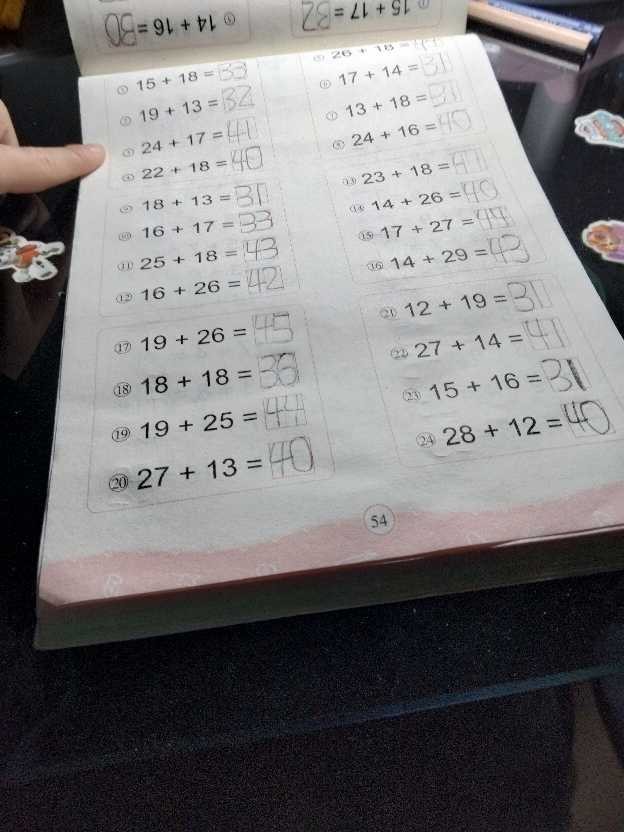 ① 14 + 16 = 30
15 + 17 = 32
① 15 + 18 = 33
② 19 + 13 = 32
③ 24 + 17 = 41
④ 22 + 18 = 40
⑤ 26 + 18 =
⑥ 17 + 14 = 31
⑦ 13 + 18 = 31
⑧ 24 + 16 = 40
⑨ 18 + 13 = 31
⑩ 16 + 17 = 33
⑪ 25 + 18 = 43
⑫ 16 + 26 = 42
⑬ 23 + 18 = 41
⑭ 14 + 26 = 40
⑮ 17 + 27 = 44
⑯ 14 + 29 = 43
⑰ 19 + 26 = 45
⑱ 18 + 18 = 36
⑲ 19 + 25 = 44
⑳ 27 + 13 = 40
㉑ 12 + 19 = 31
㉒ 27 + 14 = 41
㉓ 15 + 16 = 31
㉔ 28 + 12 = 40
54